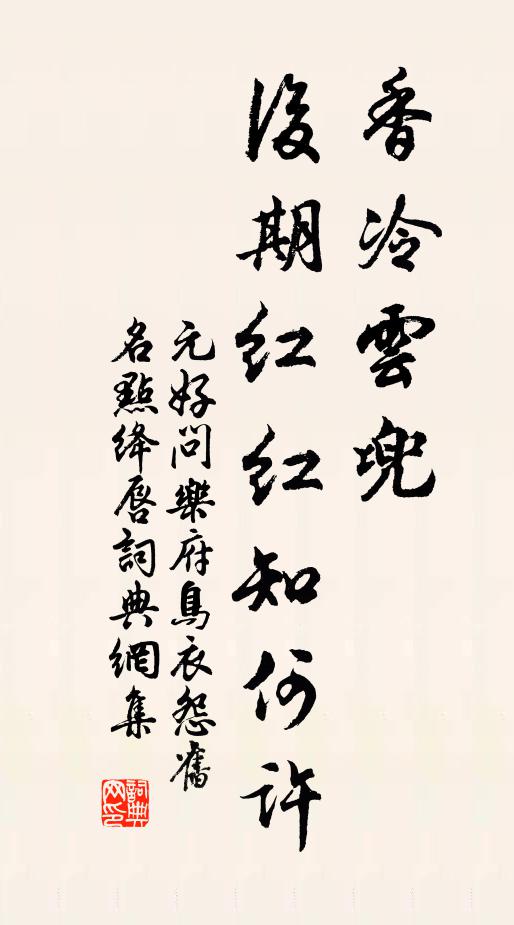 香冷雲兜
後期紅紅知何許
元好問樂府鳥衣怨舊
名點绛唇詞典網集
詞典
网印